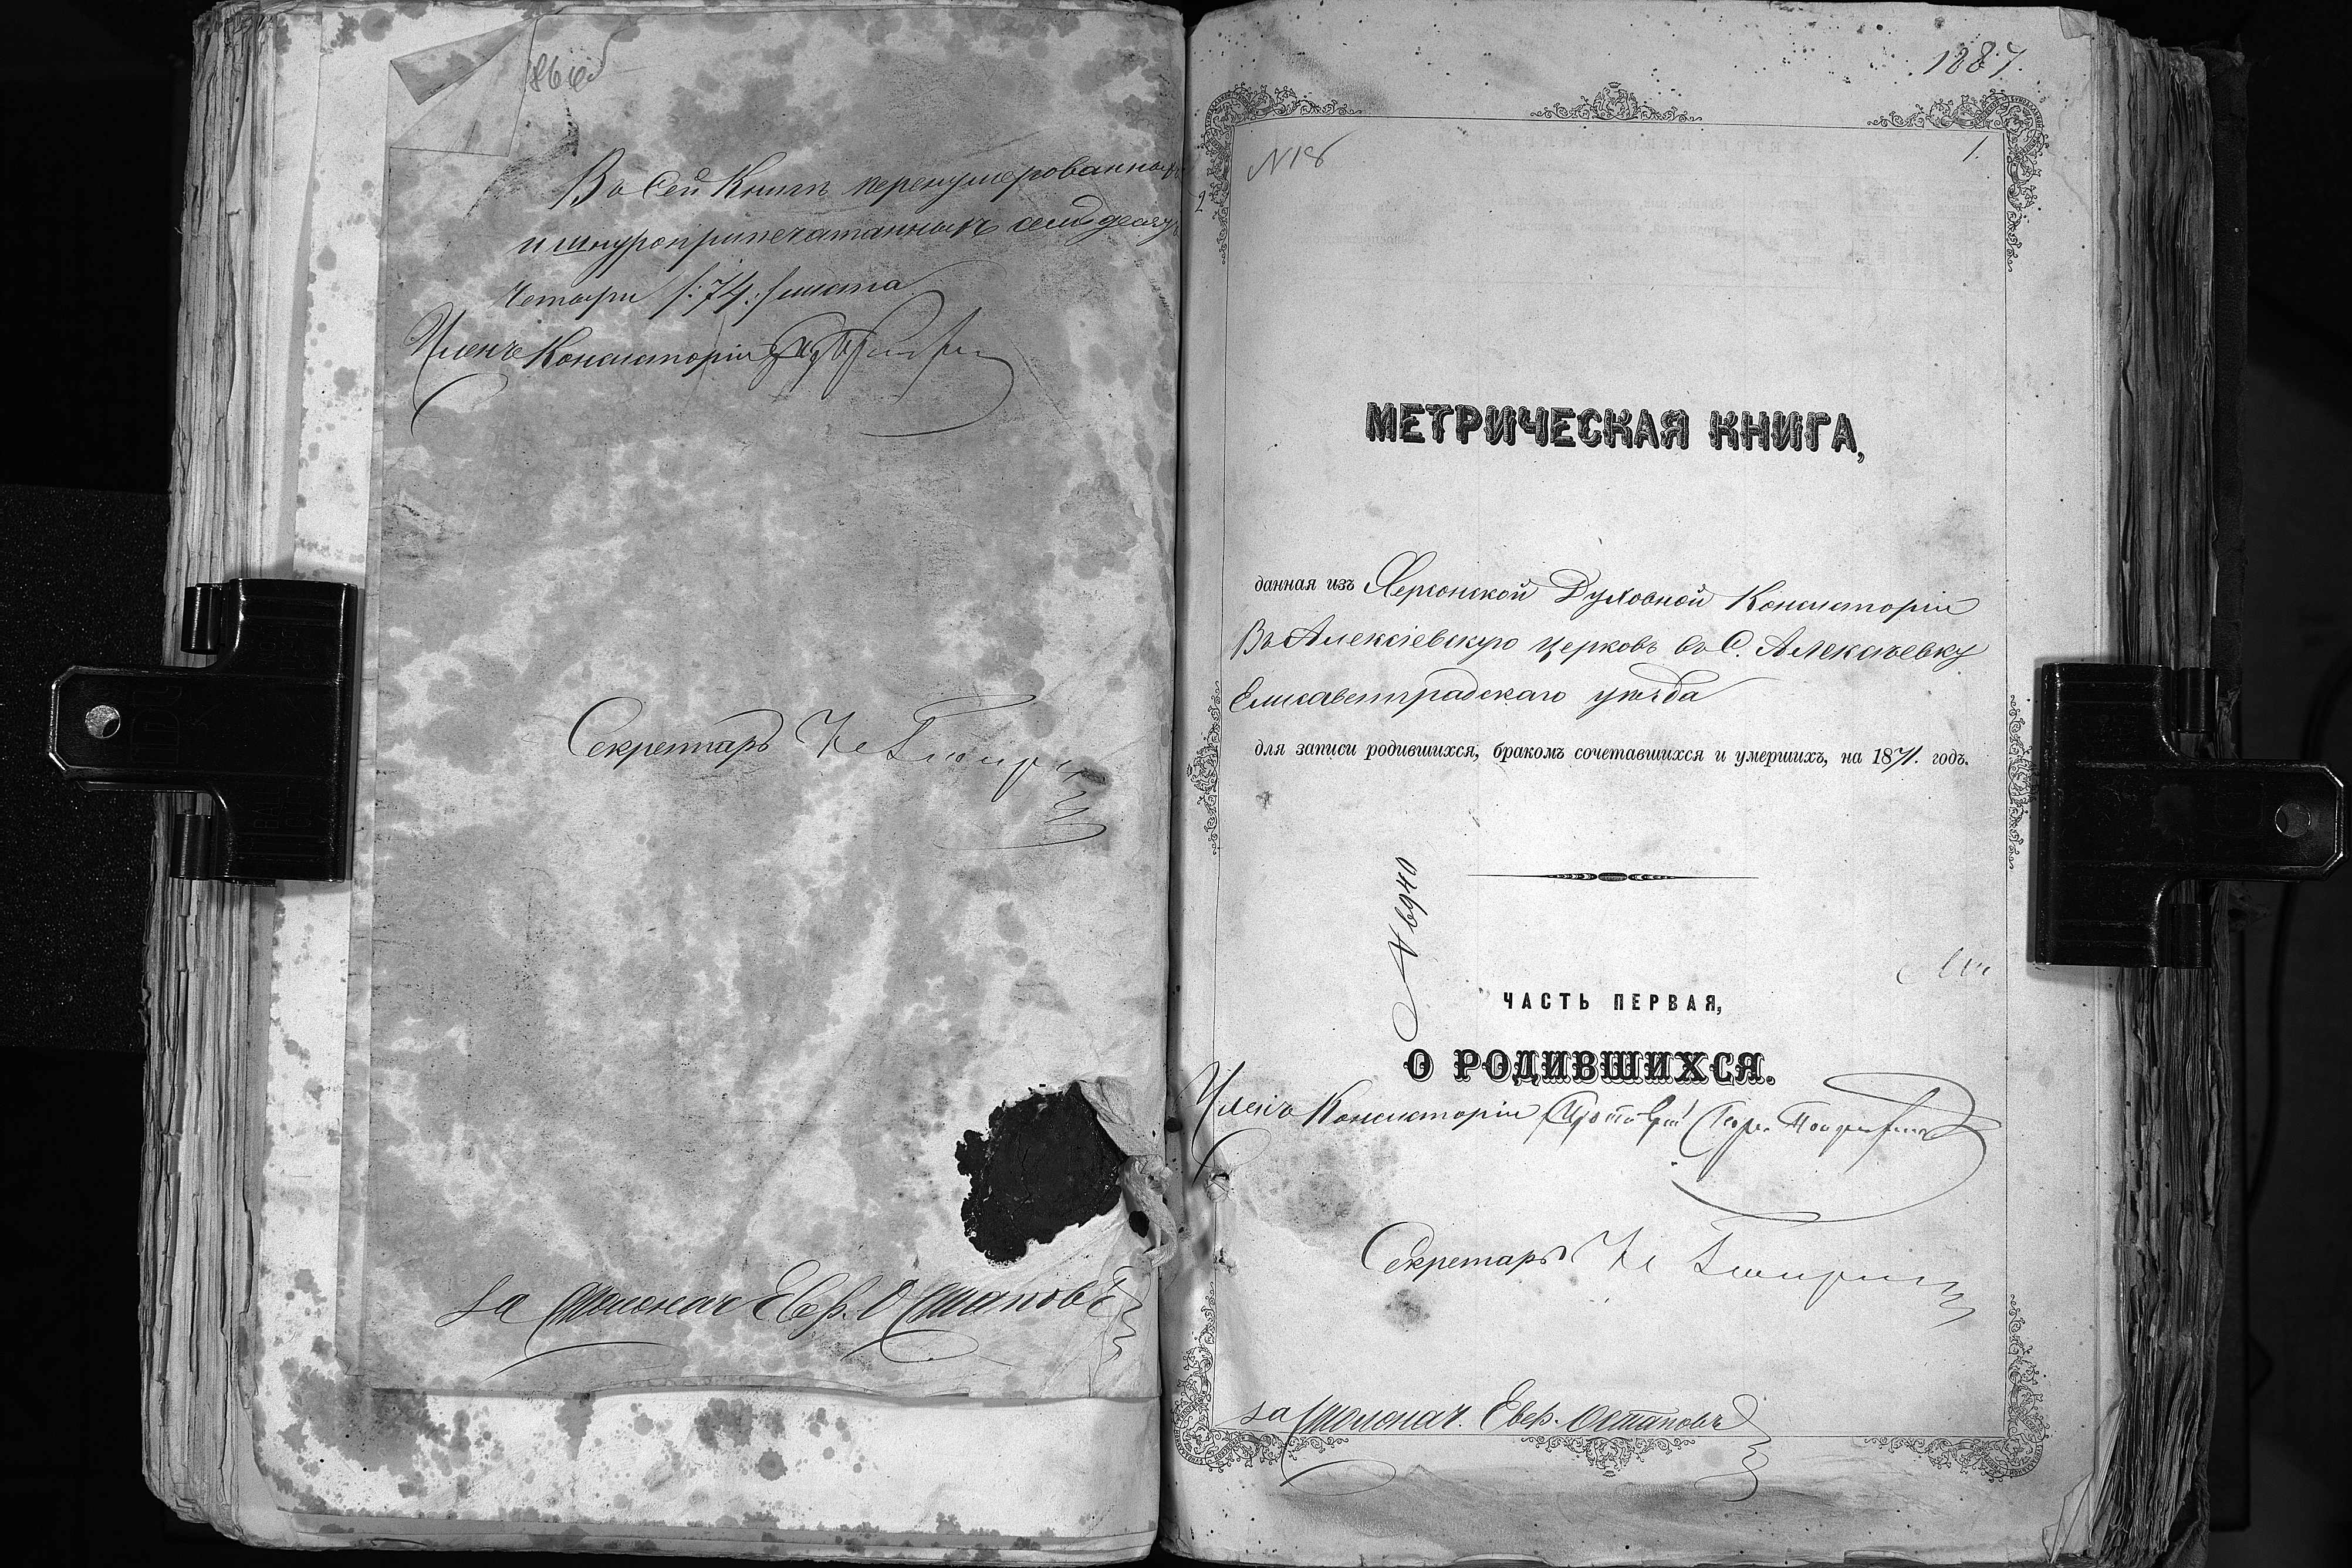 Въ Сей Книгѣ перенумерованныхъ
и шнуроприпечатанныхъ семьдесятъ
четыри /:74:/ листа
Членъ Консисторіи
Секретарь
За Столонач. Евф. Остаповъ
1887.
1.
N 18
2
МЕТРИЧЕСКАЯ КНИГА,
данная изъ Херсонской Духовной Консисторіи
Въ Алексіевскую церковь въ С. Алексѣевку
Елисаветградскаго уѣзда
для записи родившихся, бракомъ сочетавшихся и умершихъ, на 1871. годъ.
N 6940
ЧАСТЬ ПЕРВАЯ,
О РОДИВШИХСЯ.
Членъ Консисторіи
Секретарь
За Столонач. Евф. Остаповъ